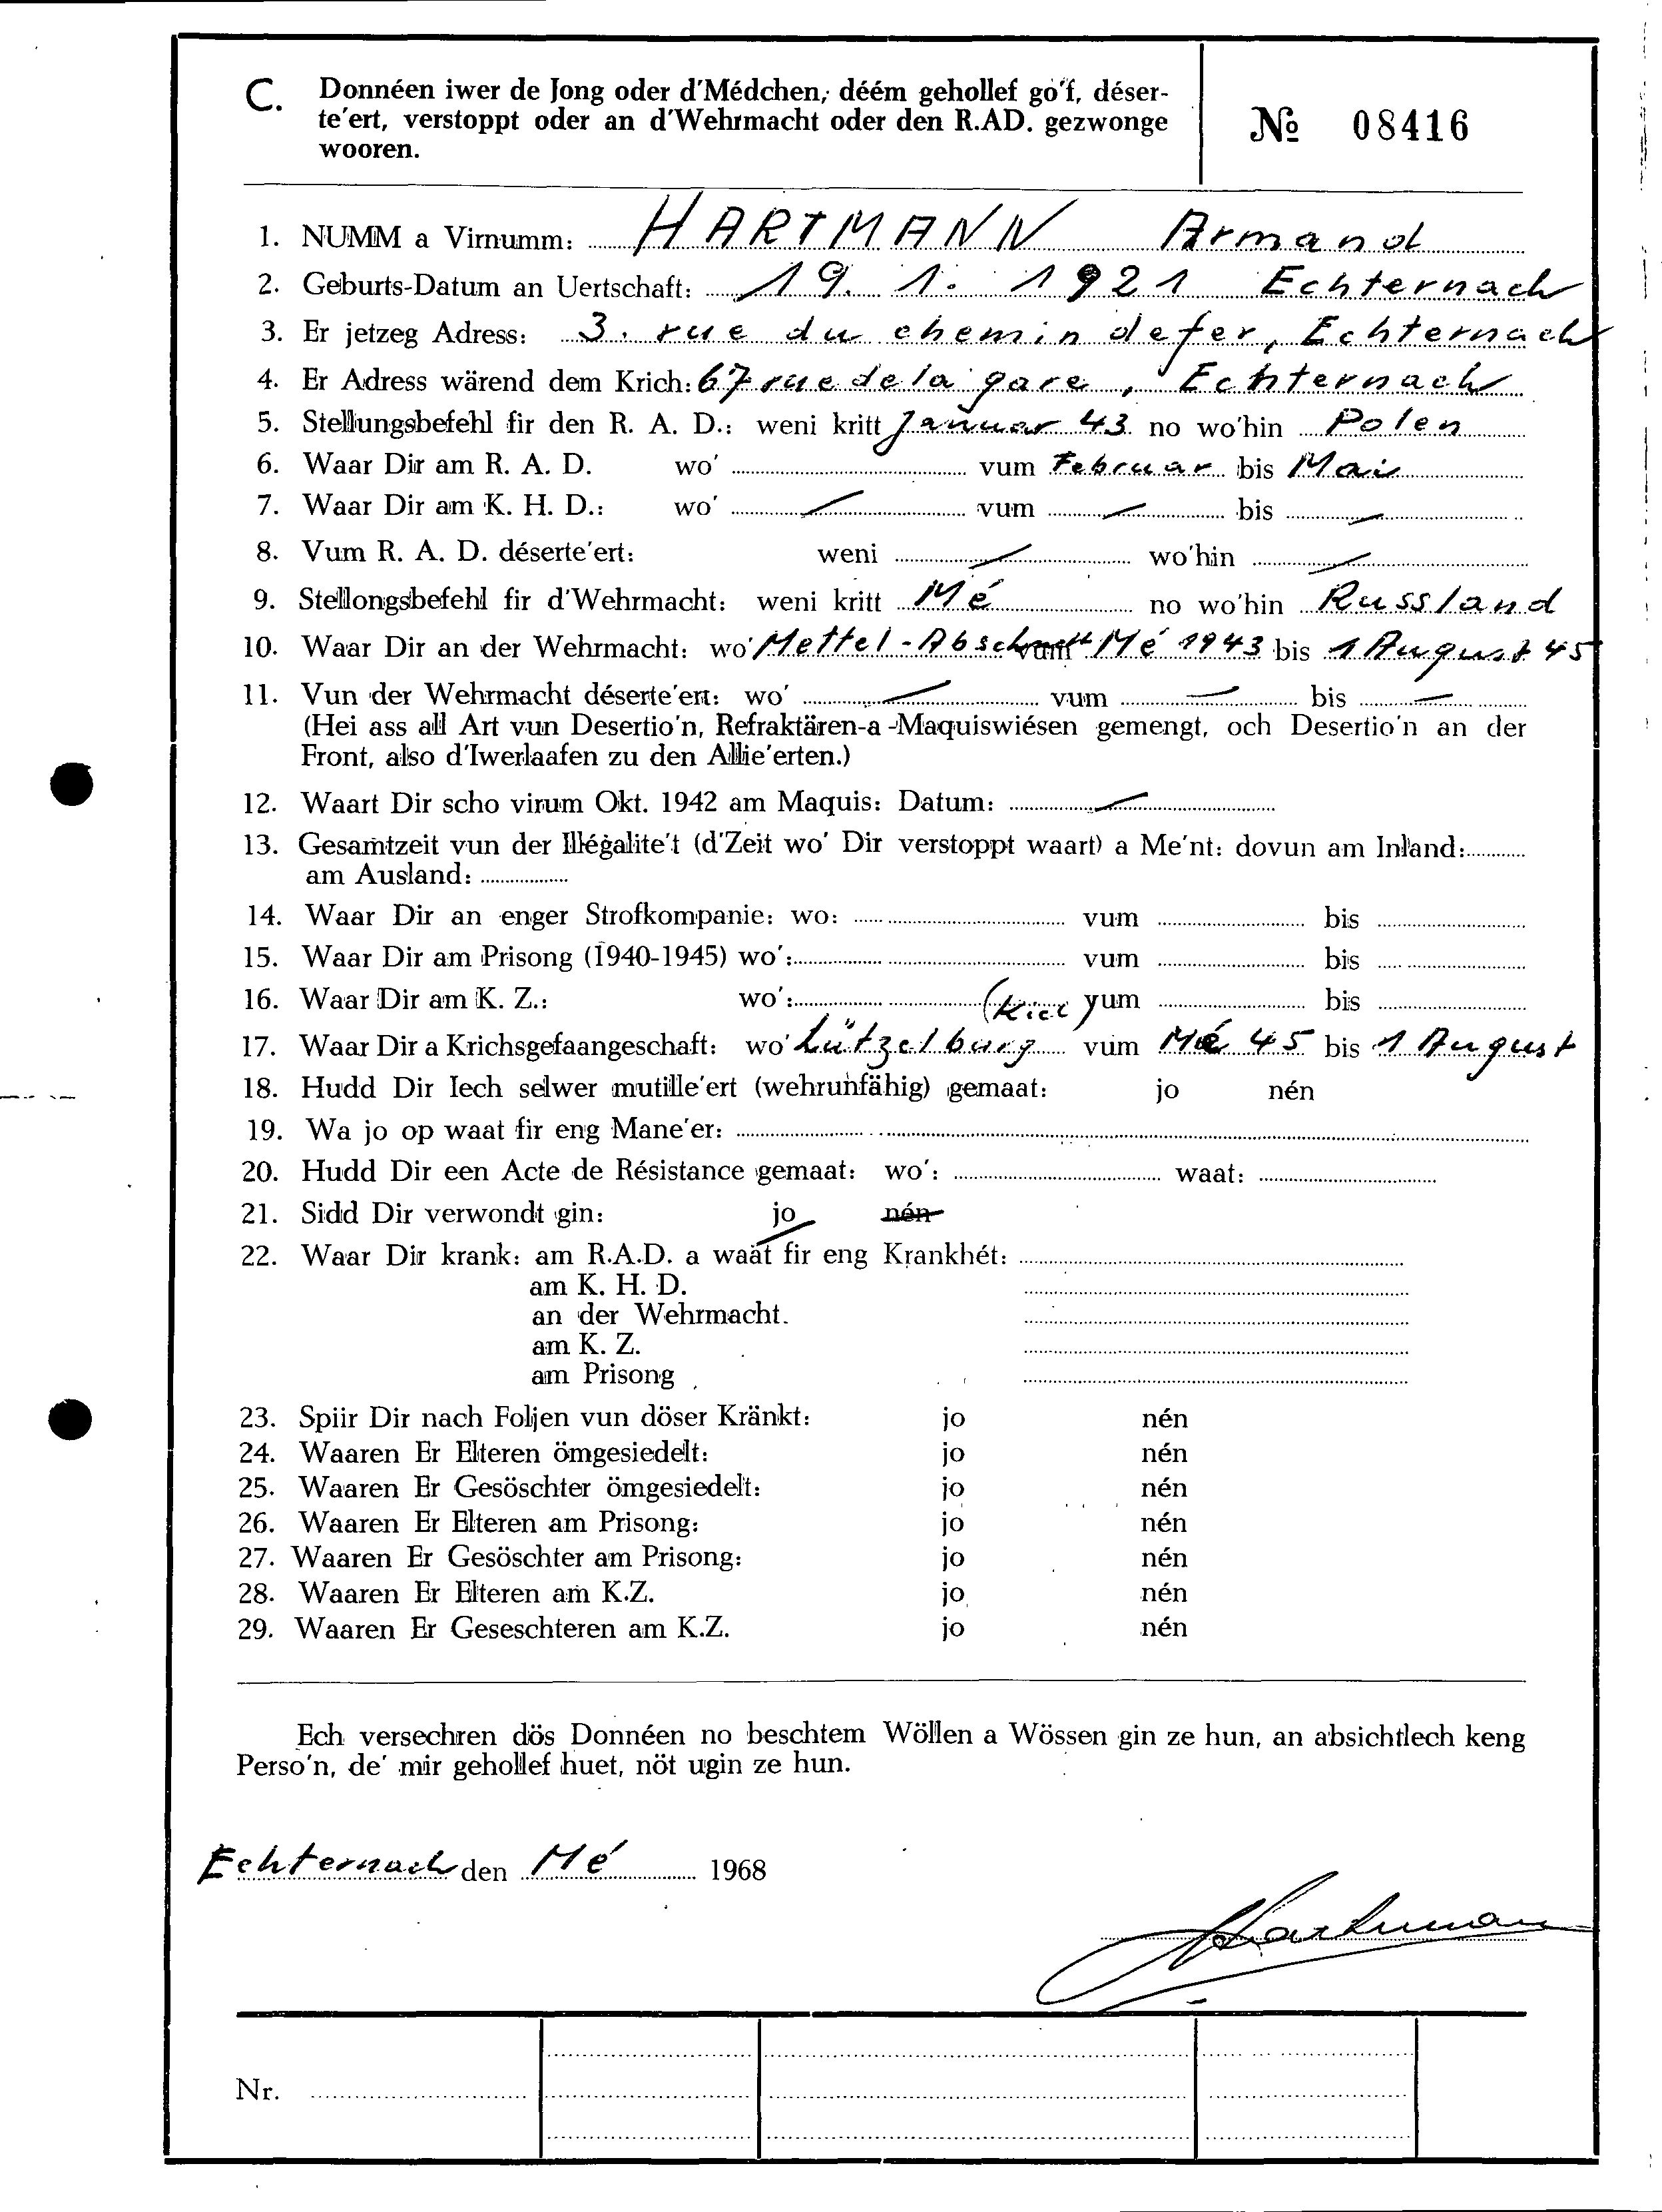 C. Donnéen iwer de Jong oder d'Médchen, déém gehollef go'f, déser-
te'ert, verstoppt oder an d'Wehrmacht oder den R.AD. gezwonge
wooren.
№ 08416
1. NUMM a Virnumm: HARTMANN Armand
2. Geburts-Datum an Uertschaft: 19. 1. 1921 Echternach
3. Er jetzeg Adress: 3. rue du chemin de fer, Echternach
4. Er Adress wärend dem Krich: 67 rue de la gare, Echternach
5. Stellungsbefehl fir den R. A. D.: weni kritt Januar 43 no wo'hin Polen
6. Waar Dir am R. A. D. wo' vum Februar bis Mai
7. Waar Dir am K. H. D.: wo' / vum / bis /
8. Vum R. A. D. déserte'ert: weni / wo'hin /
9. Stellongsbefehl fir d'Wehrmacht: weni kritt Mé no wo'hin Russland
10. Waar Dir an der Wehrmacht: wo' Mettel-Abschnitt vum Mé 1943 bis 1 August 45
11. Vun der Wehrmacht déserte'ert: wo' / vum / bis /
(Hei ass all Art vun Desertio'n, Refraktären-a-Maquiswiésen gemengt, och Desertio'n an der
Front, also d'Iwerlaafen zu den Allie'erten.)
12. Waart Dir scho virum Okt. 1942 am Maquis: Datum: /
13. Gesamtzeit vun der Illégalite't (d'Zeit wo' Dir verstoppt waart) a Me'nt: dovun am Inland:
am Ausland:
14. Waar Dir an enger Strofkompanie: wo: vum bis
15. Waar Dir am Prisong (1940-1945) wo': vum bis
16. Waar Dir am K. Z.: wo': (Kiel) vum bis
17. Waar Dir a Krichsgefaangeschaft: wo' Lützelburg vum Mé 45 bis 1 August
18. Hudd Dir Iech selwer mutille'ert (wehrunfähig) gemaat: jo nén
19. Wa jo op waat fir eng Mane'er:
20. Hudd Dir een Acte de Résistance gemaat: wo': waat:
21. Sidd Dir verwondt gin: jo nén
22. Waar Dir krank: am R.A.D. a waat fir eng Krankhét:
am K. H. D.
an der Wehrmacht.
am K. Z.
am Prisong
23. Spiir Dir nach Foljen vun döser Kränkt: jo nén
24. Waaren Er Elteren ömgesiedelt: jo nén
25. Waaren Er Gesöschter ömgesiedelt: jo nén
26. Waaren Er Elteren am Prisong: jo nén
27. Waaren Er Gesöschter am Prisong: jo nén
28. Waaren Er Elteren am K.Z. jo nén
29. Waaren Er Geseschteren am K.Z. jo nén
Ech versechren dös Donnéen no beschtem Wöllen a Wössen gin ze hun, an absichtlech keng
Perso'n, de' mir gehollef huet, nöt ugin ze hun.
Echternach den Mé 1968
Hartmann
Nr.